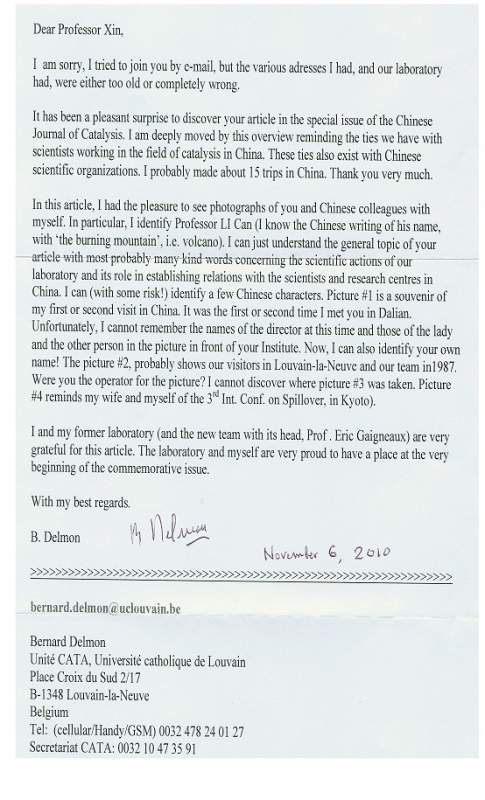 Dear Professor Xin,
I am sorry, I tried to join you by e-mail, but the various adresses I had, and our laboratory
had, were either too old or completely wrong.
It has been a pleasant surprise to discover your article in the special issue of the Chinese
Journal of Catalysis. I am deeply moved by this overview reminding the ties we have with
scientists working in the field of catalysis in China. These ties also exist with Chinese
scientific organizations. I probably made about 15 trips in China. Thank you very much.
In this article, I had the pleasure to see photographs of you and Chinese colleagues with
myself. In particular, I identify Professor LI Can (I know the Chinese writing of his name,
with ‘the burning mountain’, i.e. volcano). I can just understand the general topic of your
article with most probably many kind words concerning the scientific actions of our
laboratory and its role in establishing relations with the scientists and research centres in
China. I can (with some risk!) identify a few Chinese characters. Picture #1 is a souvenir of
my first or second visit in China. It was the first or second time I met you in Dalian.
Unfortunately, I cannot remember the names of the director at this time and those of the lady
and the other person in the picture in front of your Institute. Now, I can also identify your own
name! The picture #2, probably shows our visitors in Louvain-la-Neuve and our team in1987.
Were you the operator for the picture? I cannot discover where picture #3 was taken. Picture
#4 reminds my wife and myself of the 3rd Int. Conf. on Spillover, in Kyoto).
I and my former laboratory (and the new team with its head, Prof . Eric Gaigneaux) are very
grateful for this article. The laboratory and myself are very proud to have a place at the very
beginning of the commemorative issue.
With my best regards.
B. Delmon
B Delmon
November 6, 2010
>>>>>>>>>>>>>>>>>>>>>>>>>>>>>>>>>>>>>>>>>>>>>>>>>>>>>>>>>>>>>>>>>>>>>
bernard.delmon@uclouvain.be
Bernard Delmon
Unité CATA, Université catholique de Louvain
Place Croix du Sud 2/17
B-1348 Louvain-la-Neuve
Belgium
Tel: (cellular/Handy/GSM) 0032 478 24 01 27
Secretariat CATA: 0032 10 47 35 91